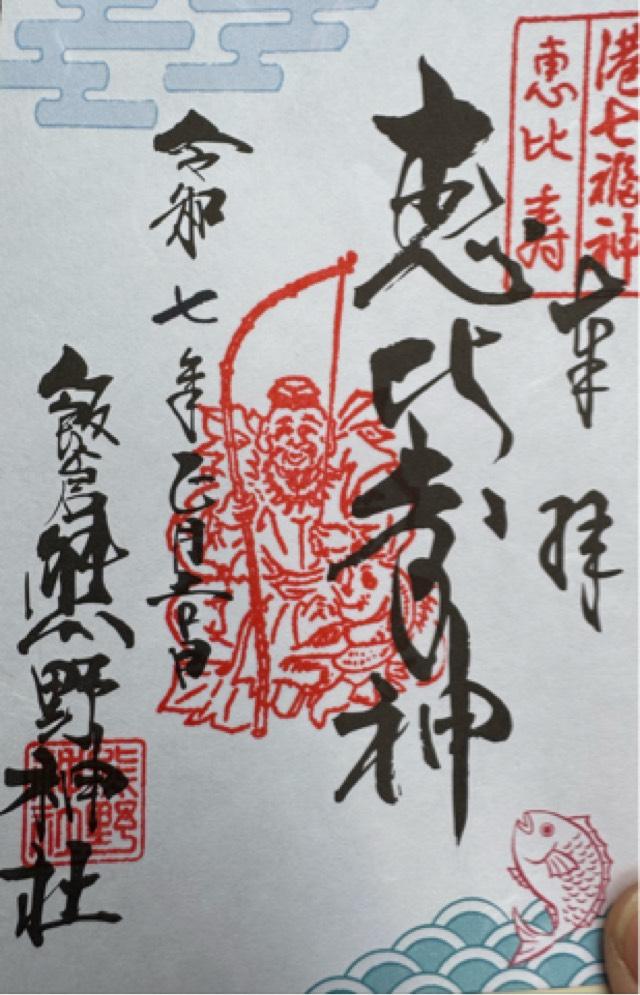 港七福神
恵比寿
奉拝
恵比寿神
令和七年正月吉日
飯倉熊野神社
熊野神社